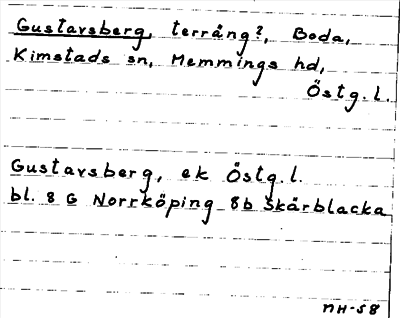 Gustavsberg, terräng?, Boda,
Kimstads sn, Memmings hd,
Östg. l.
Gustavsberg, ek Östg. l.
bl. 8 G Norrköping 8b Skärblacka
MH-58